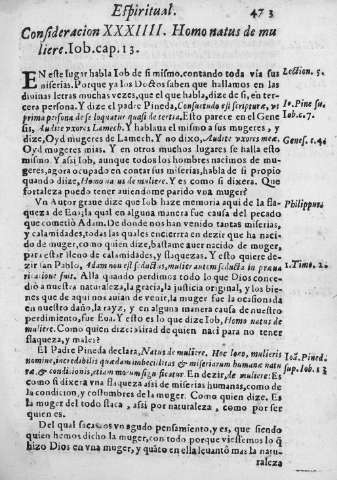 Espiritual. 473
Consideracion XXXIIII. Homo natus de mu
liere. Iob. cap. 13.
EN este lugar habla Iob de si mismo, contando toda via sus Lection. 5.
miserias. Porque ya los Doctos saben que hallamos en las
divinas letras muchas vezes, que el que habla, dize de si, en ter-
cera persona. Y dize el padre Pineda, Consuetudo est scripturæ, vt Io. Pine su.
prima persona de se loquatur quasi de tertia. Esto parece en el Gene Iob. c. 7.
sis, Audite vxores Lamech. Y hablaua el mismo a sus mugeres, y
dize, Oyd mugeres de Lamech. Y no dixo, Audite vxores meæ. Genes. c. 4.
Oyd mugeres mias. Y en otros muchos lugares se halla esto
mismo. Y assi Iob, aunque todos los hombres nacimos de mu-
geres, agora ocupado en contar sus miserias, habla de si propio
quando dize, Homo natus de muliere. Y es como si dixera. Que
fortaleza puedo tener auiendome parido vna muger?
Vn Autor graue dize que Iob haze memoria aqui de la fla- Philippus.
queza de Eua; la qual en alguna manera fue causa del pecado
que cometiò Adam. De donde nos han venido tantas miserias,
y calamidades, todas las quales encierra en dezir que ha naci-
do de muger, como quien dize, bastame auer nacido de muger,
para estar lleno de calamidades, y flaquezas. Y esto quiere de-
zir san Pablo, Adam non est seductus, mulier autem seducta in præua 1. Timo. 2.
ricatione fuit. Alla quando perdimos todo lo que Dios conce-
diò a nuestra naturaleza, la gracia, la justicia original, y los bie-
nes que de aqui nos auian de venir, la muger fue la ocasionada
en nuestro daño, la rayz, y en alguna manera causa de nuestro
perdimiento, fue Eua. Y esto es lo que dize Iob, Homo natus de
muliere. Como quien dize: Mirad de quien naci para no tener
flaqueza, y males?
El Padre Pineda declara, Natus de muliere. Hoc loco, mulieris
nomine, incredibilis quædam imbecilitas & miseriarum humanæ natu Ioã. Pined.
ræ, & conditionis, etiam morum significatur. En dezir, de muliere: Es sup. Iob. 13
como si dixera vna flaqueza assi de miserias humanas, como de
la condicion, y costumbres de la muger. Como quien dize. Es
la muger del todo flaca, assi por naturaleza, como por ser
quien es.
Del qual sacamos vn agudo pensamiento, y es, que siendo
quien hemos dicho la muger, con todo porque viestemos lo q̃
hizo Dios en vna muger, y quãto en ella leuantò mas la natu-
raleza